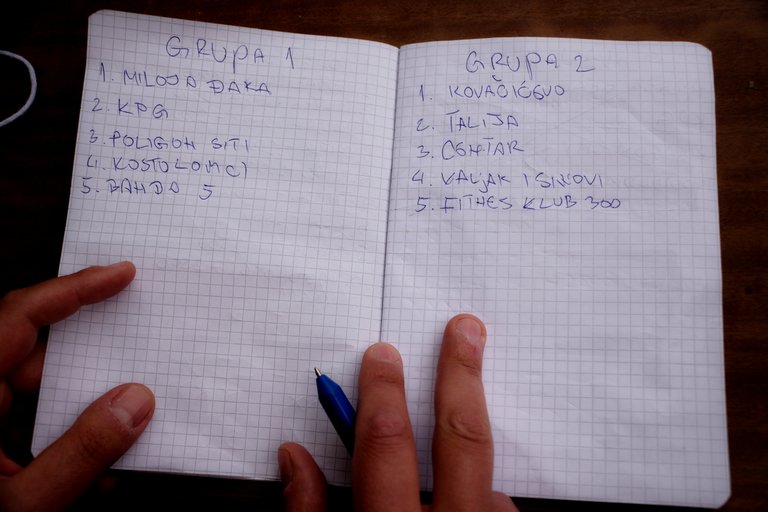 GRUPA 1
1. MILOJA ĐAKA
2. KPG
3. POLIGON SITI
4. KOSTOLOMCI
5. BANDA 5
GRUPA 2
1. KOVAČIĆEVO
2. TALIJA
3. CENTAR
4. VALJAK I SINOVI
5. FITNES KLUB 300